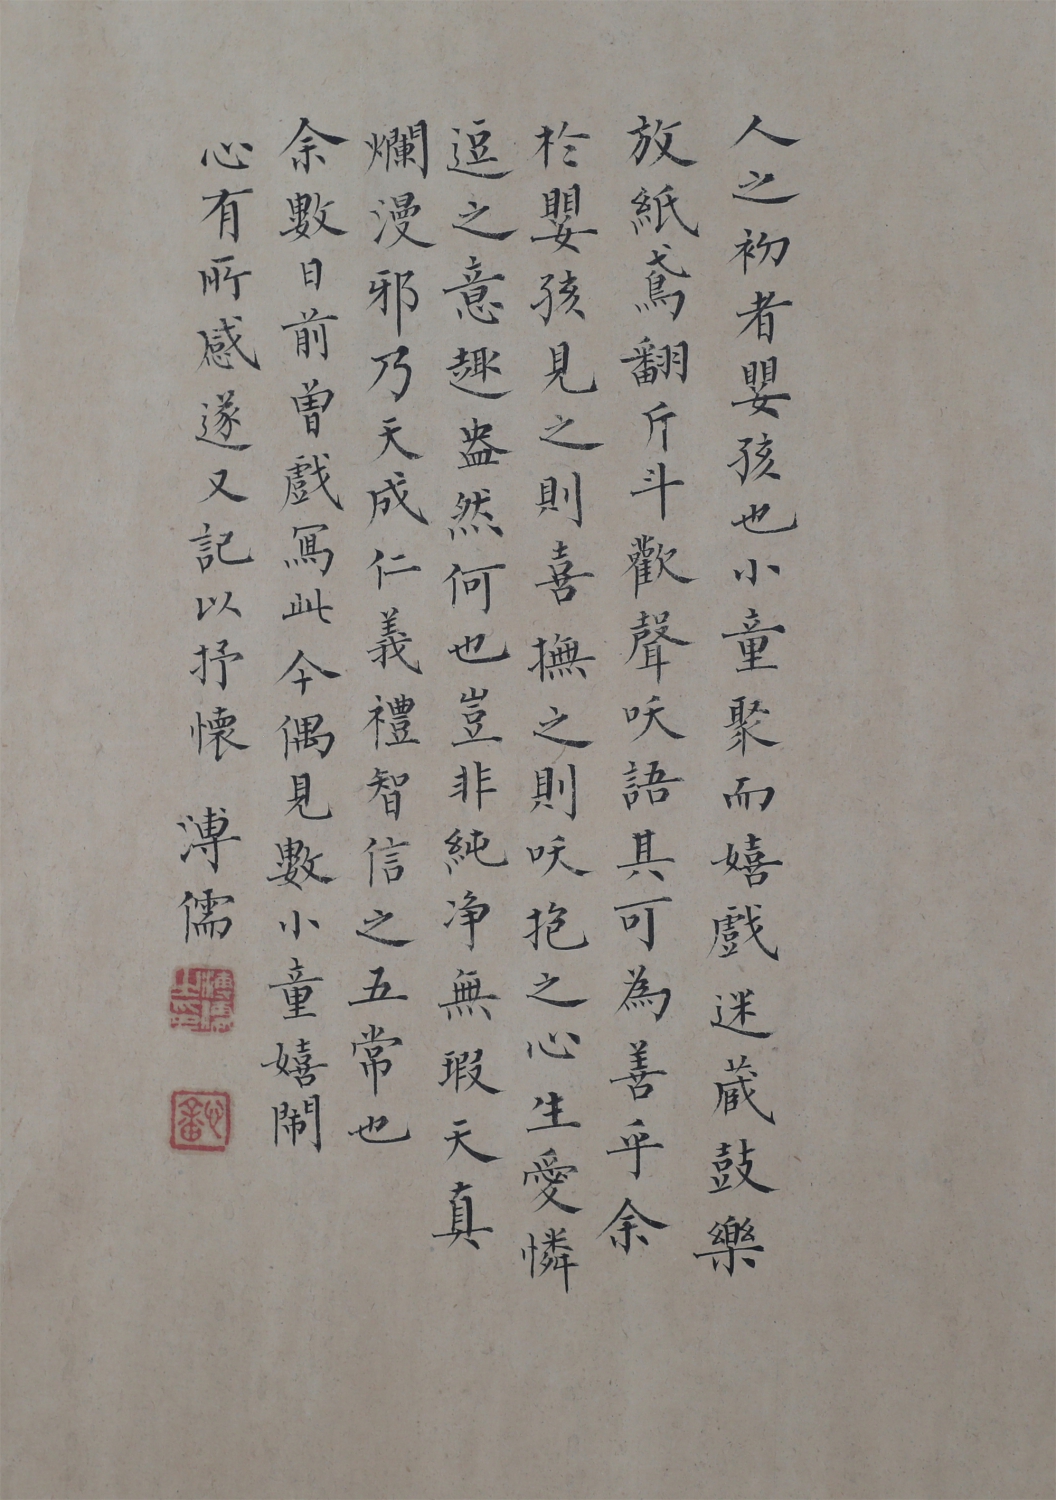 人之初者嬰孩也小童聚而嬉戲迷蔵鼓樂
放紙鳶翻斤斗歡聲咲語其可為善乎余
於嬰孩見之則喜撫之則咲抱之心生愛憐
逗之意趣盎然何也豈非純净無瑕天真
爛漫邪乃天成仁義禮智信之五常也
余數日前曽戲寫此今偶見數小童嬉閙
心有所感遂又記以抒懷
溥儒